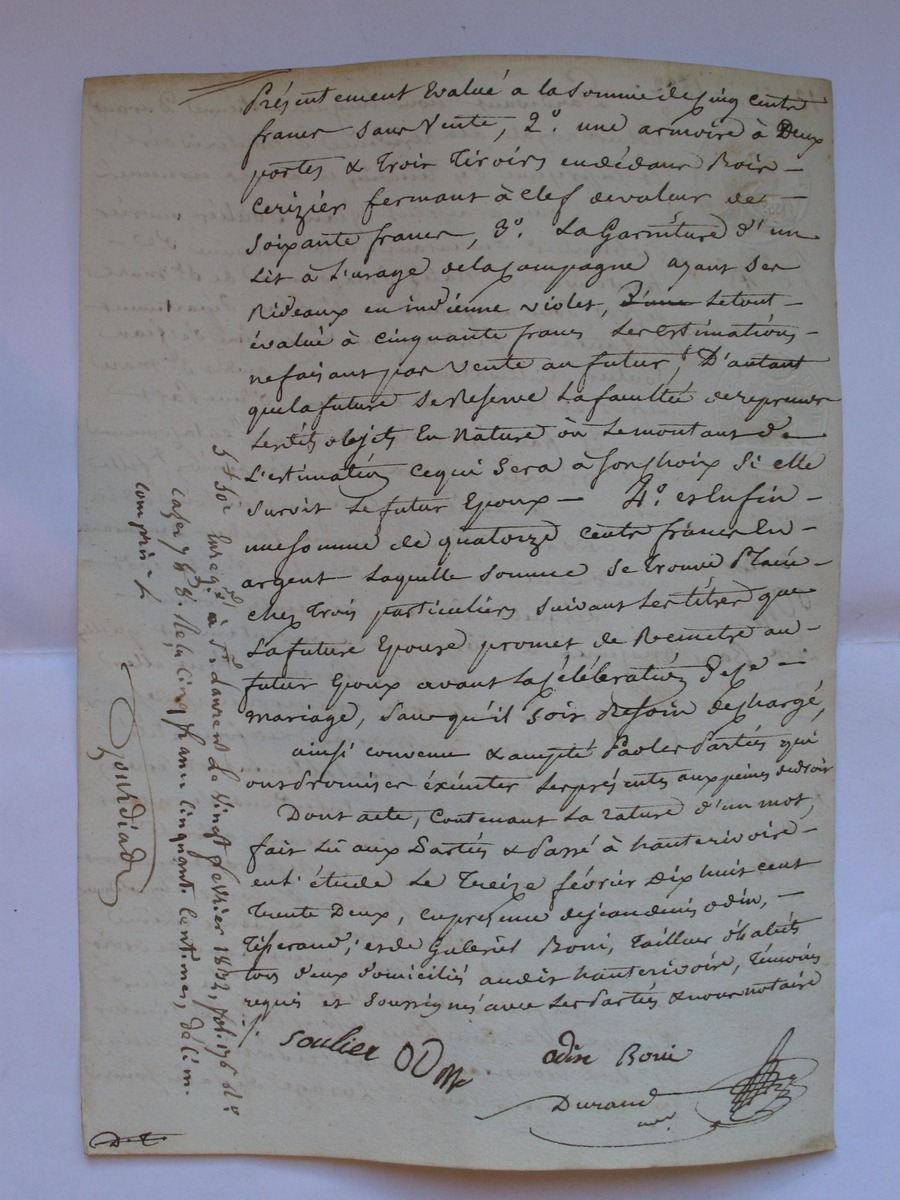 présentement Evalué à la Somme de Cinq Cents
francs Sans Vente, 2°. une armoire à Deux
portes & trois tiroirs en dédans Bois
Cerizier fermant à clef de valeur de
Soixante francs, 3°. La Garniture d'un
Lit à L'usage de la Campagne ayant Ses
Rideaux en indienne violet, Le tout
évalué à cinquante francs Les Estimations
ne faisant pas Vente au futur, D'autant
que la future Se Reserve La faculté de reprendre
Lesdits objets En Nature où Le montant de
L'estimation ce qui Sera à Son Choix Si elle
Survit Le futur Epoux — 4°. et Enfin
une Somme de quatorze cents francs En
argent Laquelle Somme Se trouve Placée
chez trois particuliers Suivant Les titres que
La future Epouse promet de Remettre au
futur Epoux avant La Célébration De ce
mariage, Sans qu'il Soit Besoin De chargé,
ainsi convenu & accepté Par les Parties qui
ont Promis et éxécuter Les présentes aux peines de droit
Dont acte, Contenant La rature d'un mot,
fait Lû aux Parties & Passé à hauterivoire
en L'étude Le Treize février Dix huit cent
trente Deux, En presence de jean denis odin,
Tisserand, et de Gabriel Boni, Tailleur d'habits
tous deux domiciliés audit hauterivoire, Témoins
requis et Soussignés avec Les Parties & nous notaire
Soulier
odin Boni
Durand
Enreg.ré à St. Laurent Le vingt février 1832, fol. 176 R°.
Case 7 & 8. Reçu Cinq francs Cinquante Centimes, décime
compris